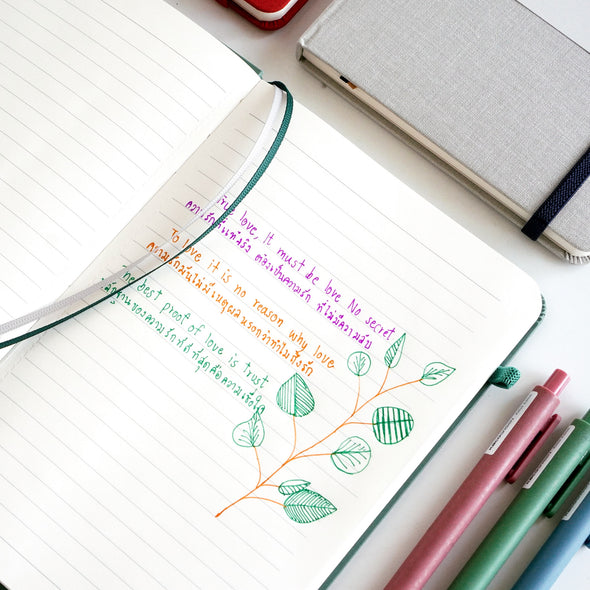 True love, It must be love No secret
ความรักที่แท้จริง ต้องเป็นความรัก ที่ไม่มีความลับ
To love it is no reason why love
ความรักมันไม่มีเหตุผลหรอกว่าทำไมถึงรัก
The best proof of love is trust
ของความรักที่ดีที่สุดคือความเชื่อใจ